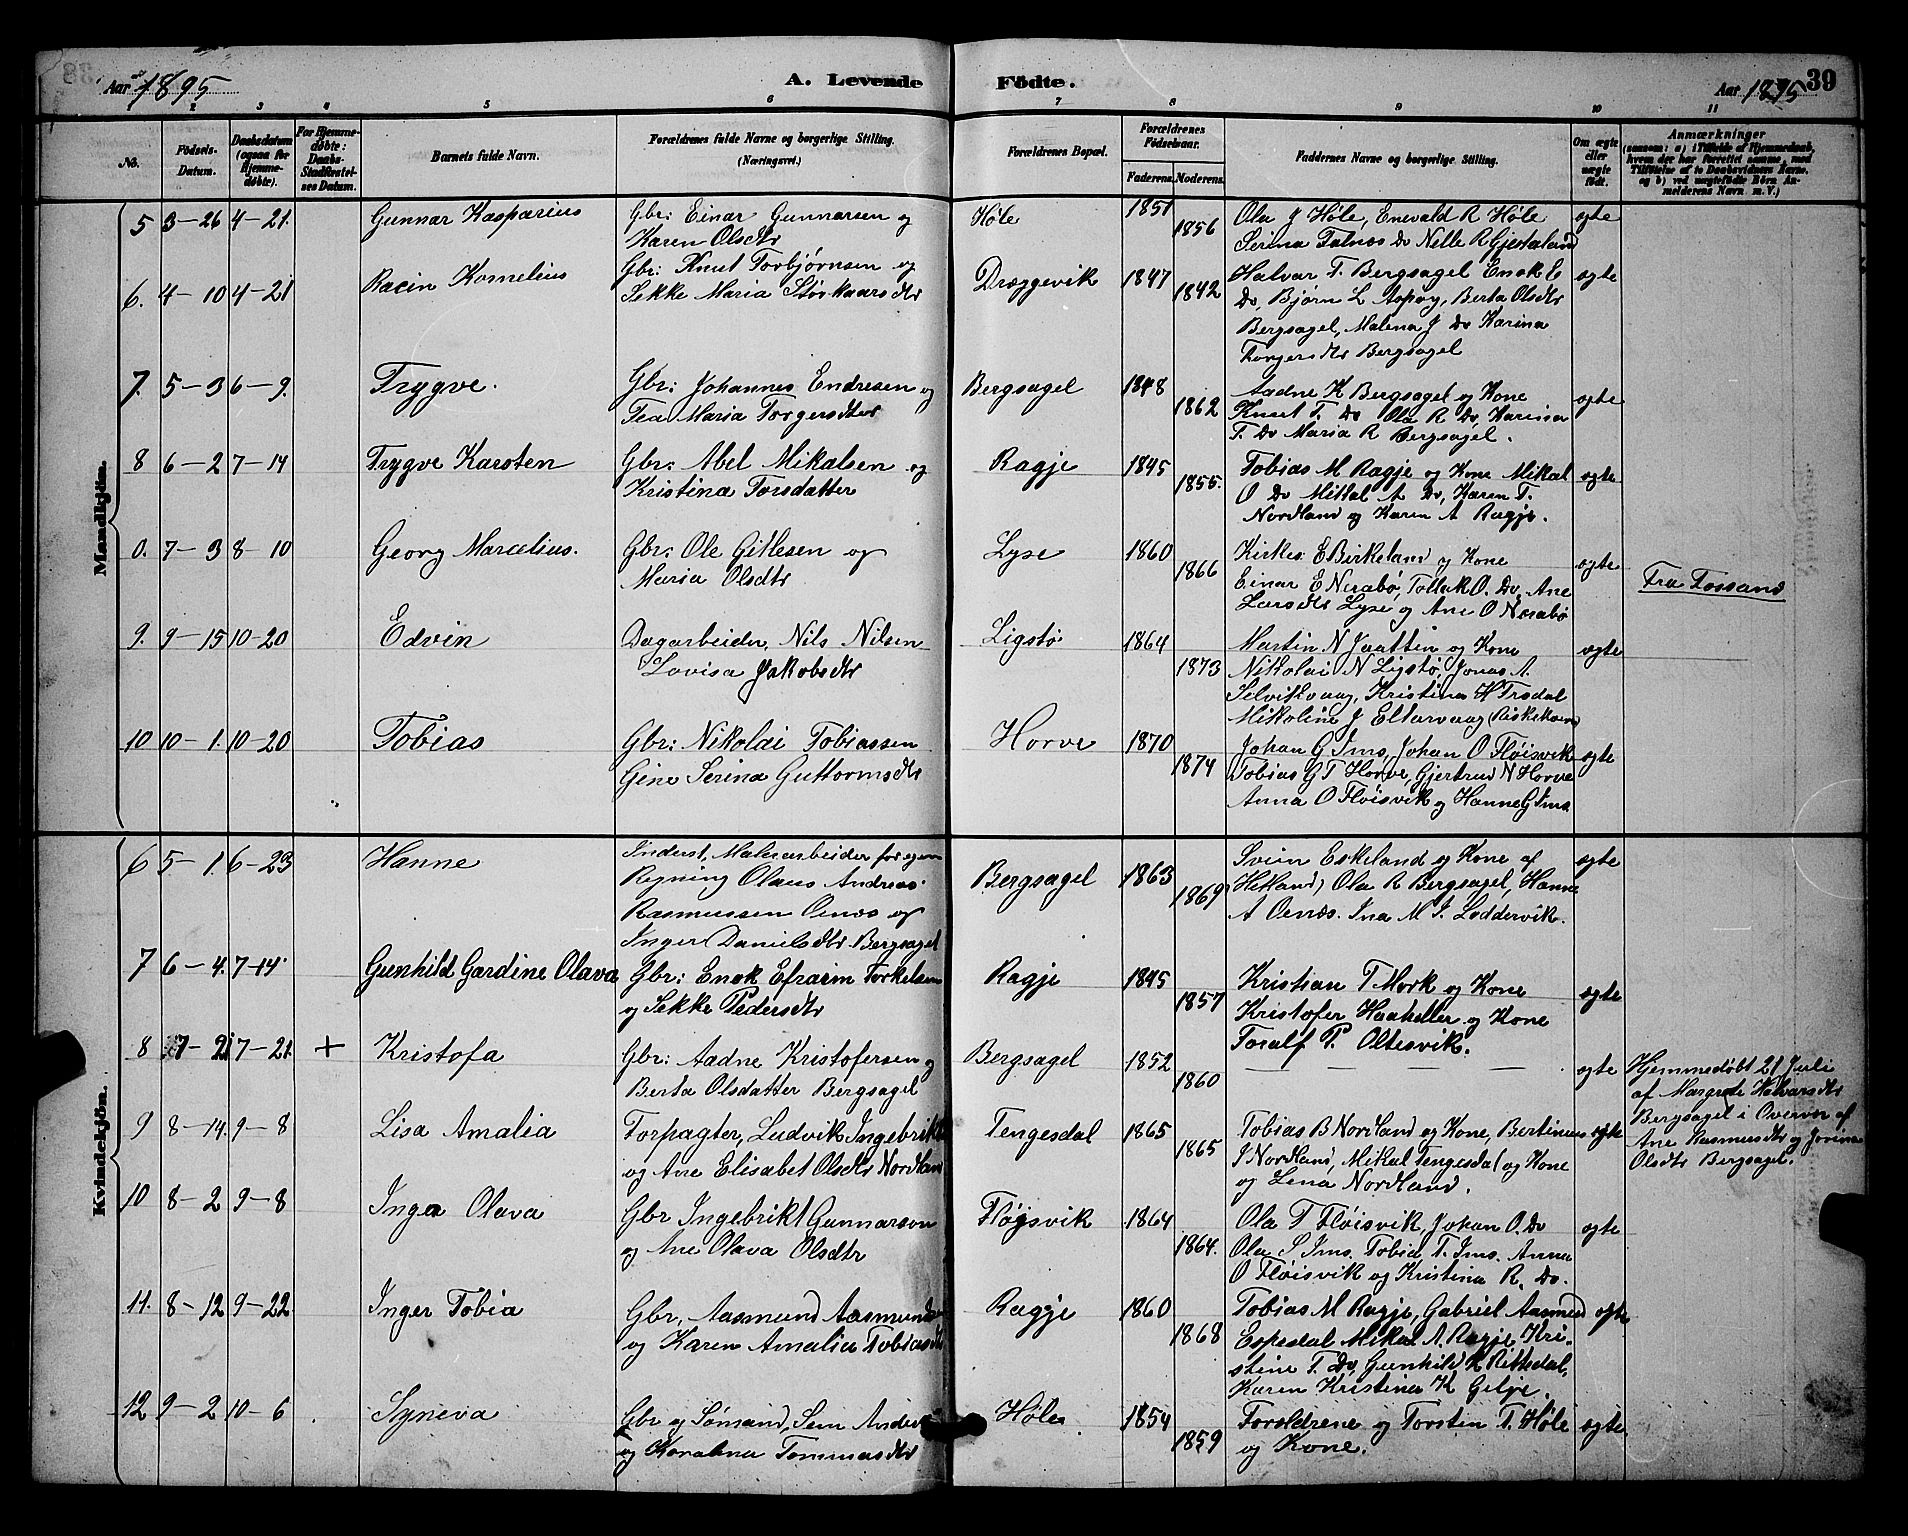 Aar 1895
A. Levende Födte.
Aar 1895
39
2 3 4 5 6 7 8 9 10 11
No.
Födsels-Datum.
Daabsdatum (ogsaa for Hjemme-döbte).
For Hjemme-döbte: Daabs-Stadfæstel-ses Datum.
Barnets fulde Navn.
Forældrenes fulde Navne og borgerlige Stilling.
(Næringsvei.)
Forældrenes Bopæl.
Forældrenes Födselsaar.
Faderens. Moderens.
Faddernes Navne og borgerlige Stilling.
Om ægte eller uægte födt.
Anmærkninger
(saasom: a) i Tilfælde af Hjemmedaab, hvem der har forrettet samme, med Tilföielse af to Daabsvidners Navne, og b) ved uægtefödte Börn An-melderens Navn m. V.)
Mandkjön.
5 3-26 4-21. Gunnar Kasparius
Gbr: Einar Gunnarsen og
Karen Olsdtr
Høle 1851 1856
Ola J Høle, Enevald R Høle
Serina Talnes Do Nelle R Gjestaland
ægte
6. 4-10 4-21 Racin Kornelius
Gbr: Knut Torbjørnsen og
Sekke Maria Størkaarsdtr
Dræggevik 1847 1842
Halvar T. Bergsagel Enok E
Do, Bjørn L Aspøy, Berta Olsdtr
Bergsagel, Malena J Do Karina
Torgersdtr Bergsagel
ægte
7. 5-3 6-9. Trygve.
Gbr: Johannes Endresen og
Tea Maria Torgersdtr
Bergsagel 1848 1862
Aadne K Bergsagel og Kone
Knut T. Do Ola R Do, Karina
T. Do Maria R Bergsagel.
ægte
8 6-2 7-14 Trygve Karsten
Gbr: Abel Mikalsen og
Kristina Torsdatter
Ragje 1845 1855.
Tobias M Ragje og Kone Mikal
O Do Mikal A Do, Karen T.
Nordland og Karen A Ragje.
ægte
0. 7-3 8-10 Georg Marcelius.
Gbr: Ole Gitlesen og
Maria Olsdtr
Lyse 1860 1866
Kirkes: E Birkeland og Kone
Einar E Nerabø, Tollak O. Do, Ane
Larsdtr Lyse og Ane O Nerabø
ægte
Fra Fossand
9. 9-15 10-20 Edvin
Dagarbeider, Nils Nilsen
Lovisa Jakobsdtr
Ligstø 1864 1873
Martin N Jaattin og Kone
Nikolai N Ligstø, Jonas A.
Selvikvaag, Kristina H Frsdal
Mikoline J Eltarvaag (Riskekvern)
ægte
10 10-1. 10-20 Tobias
Gbr: Nikolai Tobiassen
Gine Serina Guttormsdtr
Horve 1870 1874
Johan G Ims, Johan O Fløisvik
Tobias G T Horve, Gjertrud N Horve
Anna O Fløisvik og Hanne G Ims
ægte
Kvindekjön.
6 5-1. 6-23 Hanne
Inderst, Malerarbeider for egen
Regning Olaus Andreas
Rasmussen Oenæs og
Inger Danielsdtr Bergsagel
Bergsagel 1863 1869
Svein Eskeland og Kone af
Hetland, Ola R Bergsagel, Hanne
A Oenæs. Ina M J. Loddervik.
ægte
7 6-4. 7-14 Gunhild Gardine Olava
Gbr: Enok Efraim Torkelsen
og Sekke Pedersdtr
Ragje 1845 1857
Kristian T Mork og Kone
Kristofer Haaheller og Kone
Toralf P. Oltesvik.
ægte
8 7-21 7-21. + Kristofa
Gbr: Aadne Kristofersen og
Berta Olsdatter Bergsagel
Bergsagel 1852 1860
— — — — —
ægte
Hjemmedøbt 21 Juli
af Margrete Halvarsdtr
Bergsagel i Overvær af
Ane Rasmusdtr og Jorina
Olsdtr Bergsagel.
9 8-14. 9-8 Lisa Amalia
Forpagter, Ludvik Ingebrikts
og Ane Elisabet Olsdtr Nordland
Tengesdal 1865 1865
Tobias B Nordland og Kone, Bertinus
J Nordland, Mikal Tengesdal og Kone
og Lena Nordland.
ægte
10 8-2 9-8 Inga Olava
Gbr Ingebrikt Gunnarson
og Ane Olava Olsdtr
Fløysvik 1864 1864.
Ola T Fløisvik, Johan O. Do
Ola S Ims. Tobia T. Ims. Anna
O Fløisvik og Kristina R. Do.
ægte
11. 8-12 9-22 Inger Tobia
Gbr, Aasmund Aasmunds
og Karen Amalia Tobiasdtr
Ragje 1860 1868
Tobias M Ragje, Gabriel Aasmund
Espedal Mikal A. Ragje, Kri-
stine T. Do, Gunhild K Rettedal,
Karen Kristina K Gilje.
ægte
12 9-2 10-6 Syneva
Gbr og Sømand, Sem Anders
og Koralina Tommasdtr
Høle 1854 1859
Foreldrene og Torsten T. Høle
og Kone.
ægte